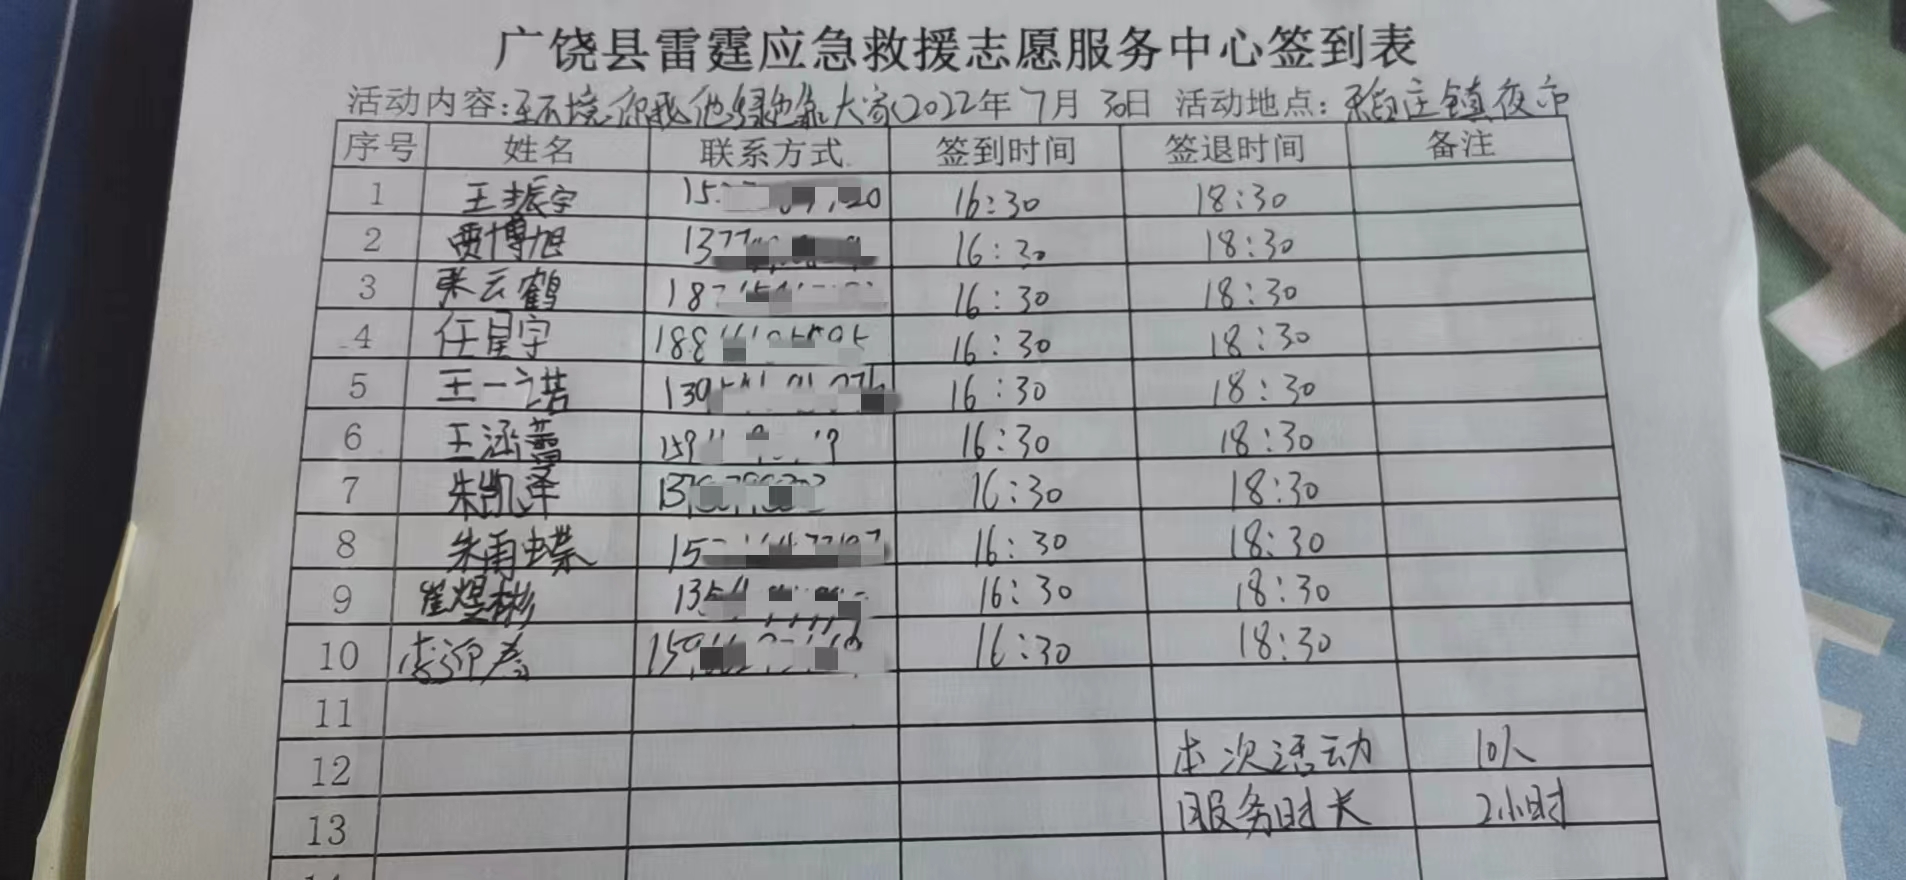 广饶县雷霆应急救援志愿服务中心签到表
活动内容: 环境你我他绿地靠大家 2022年7月30日 活动地点: 庄镇夜市
序号 姓名 联系方式 签到时间 签退时间 备注
1 王振宇 15 20 16:30 18:30
2 贾博旭 137 16:30 18:30
3 张云鹤 18 16:30 18:30
4 任星宇 188 16:30 18:30
5 王一诺 130 16:30 18:30
6 王涵蕾 159 16:30 18:30
7 朱凯泽 16:30 18:30
8 朱雨蝶 15 16:30 18:30
9 崔煜彬 135 16:30 18:30
10 李迎春 159 16:30 18:30
11
12 本次活动 10人
13 服务时长 2小时